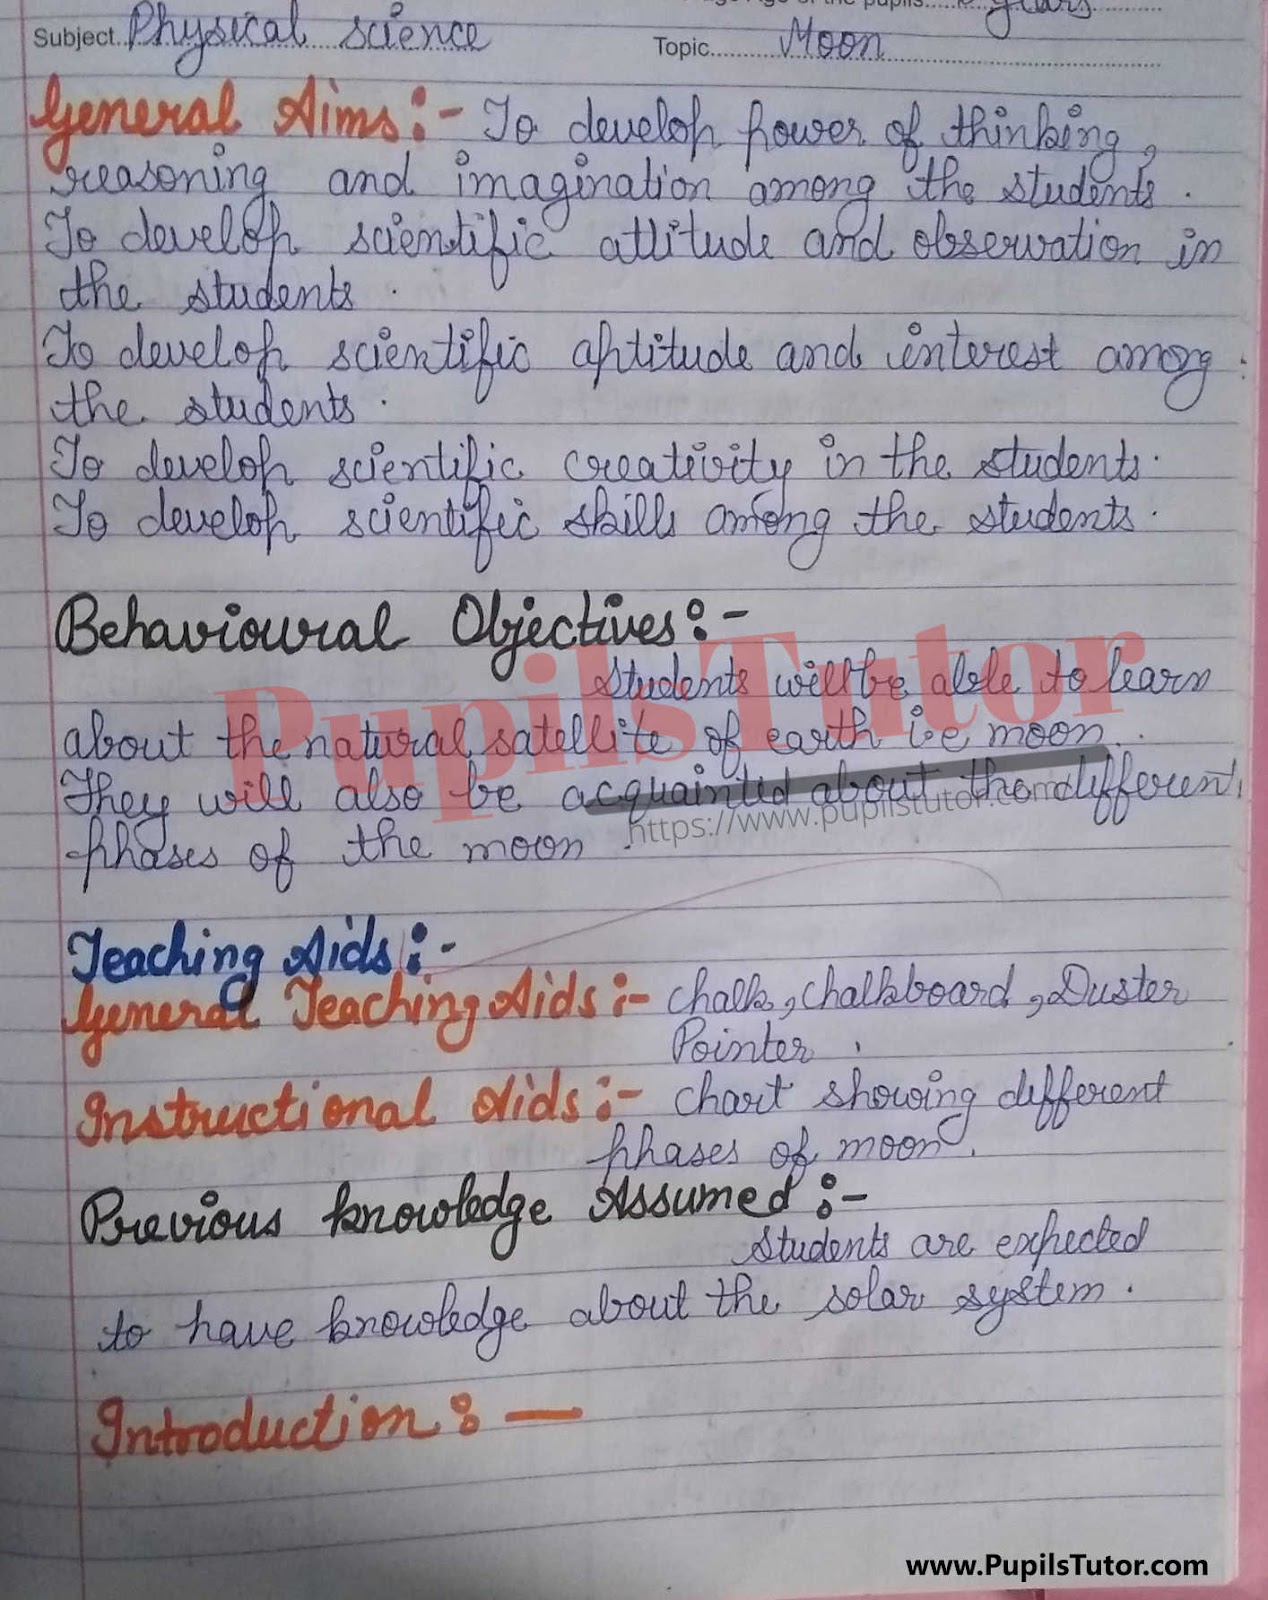 Age of the pupils..... Years
Subject..Physical science Topic.......Moon
General Aims:- To develop power of thinking,
reasoning and imagination among the students.
To develop scientific attitude and observation in
the students.
To develop scientific aptitude and interest among
the students.
To develop scientific creativity in the students.
To develop scientific skills among the students.
Behavioural Objectives:-
Students will be able to learn
about the natural satellite of earth i.e moon.
They will also be acquainted about the different
phases of the moon.
PupilsTutor
https://www.pupilstutor.com
Teaching Aids:-
General Teaching Aids:- chalk, chalkboard, Duster
Pointer.
Instructional Aids:- chart showing different
phases of moon.
Previous knowledge Assumed:-
Students are expected
to have knowledge about the solar system.
Introduction:-
www.PupilsTutor.com